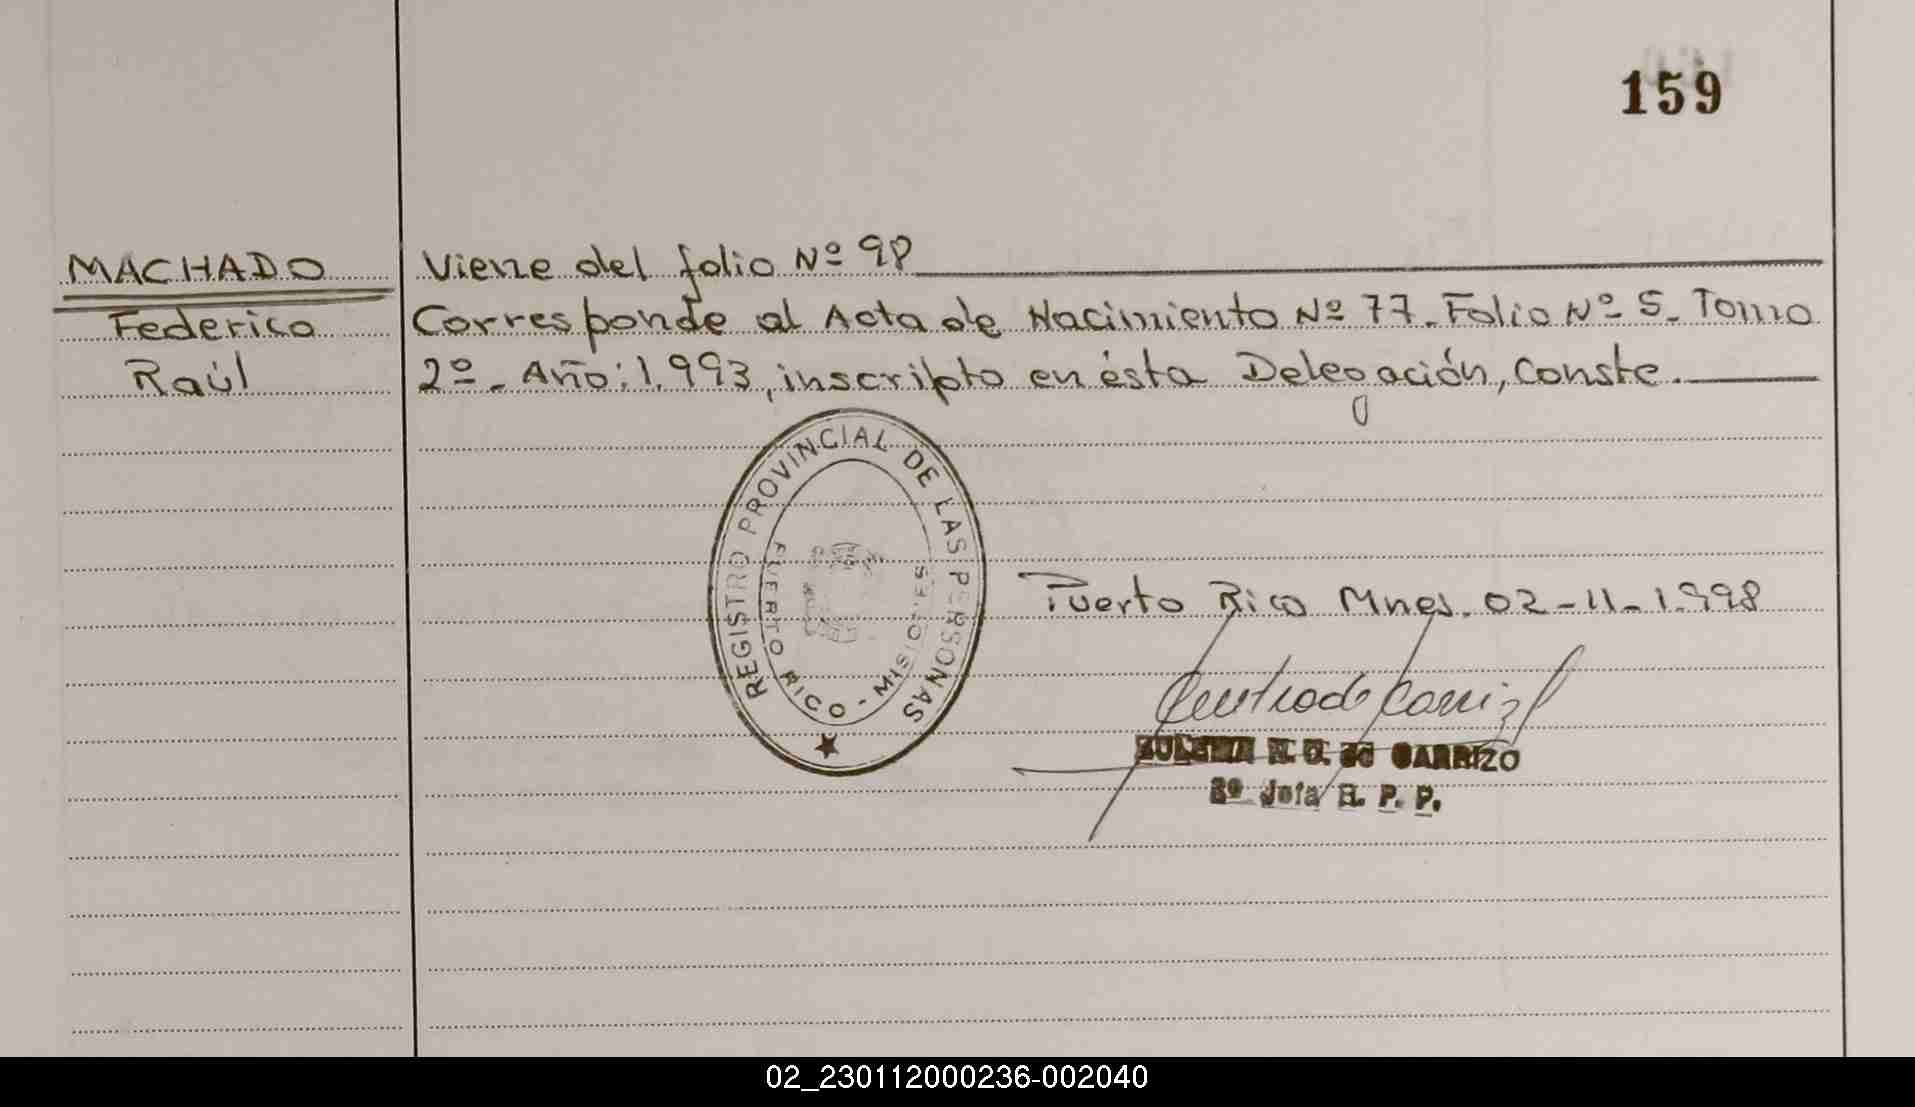 159
MACHADO
Federico
Raúl
Viene del folio Nº 98
Corresponde al Acta de Nacimiento Nº 77. Folio Nº 5. Tomo
2º. Año: 1.993, inscripto en ésta Delegación, Conste.
REGISTRO PROVINCIAL DE LAS PERSONAS
PUERTO RICO - MISIONES
Puerto Rico Mnes. 02-11-1.998
de CARRIZO
2º Jefa R. P. P.
02_230112000236-002040